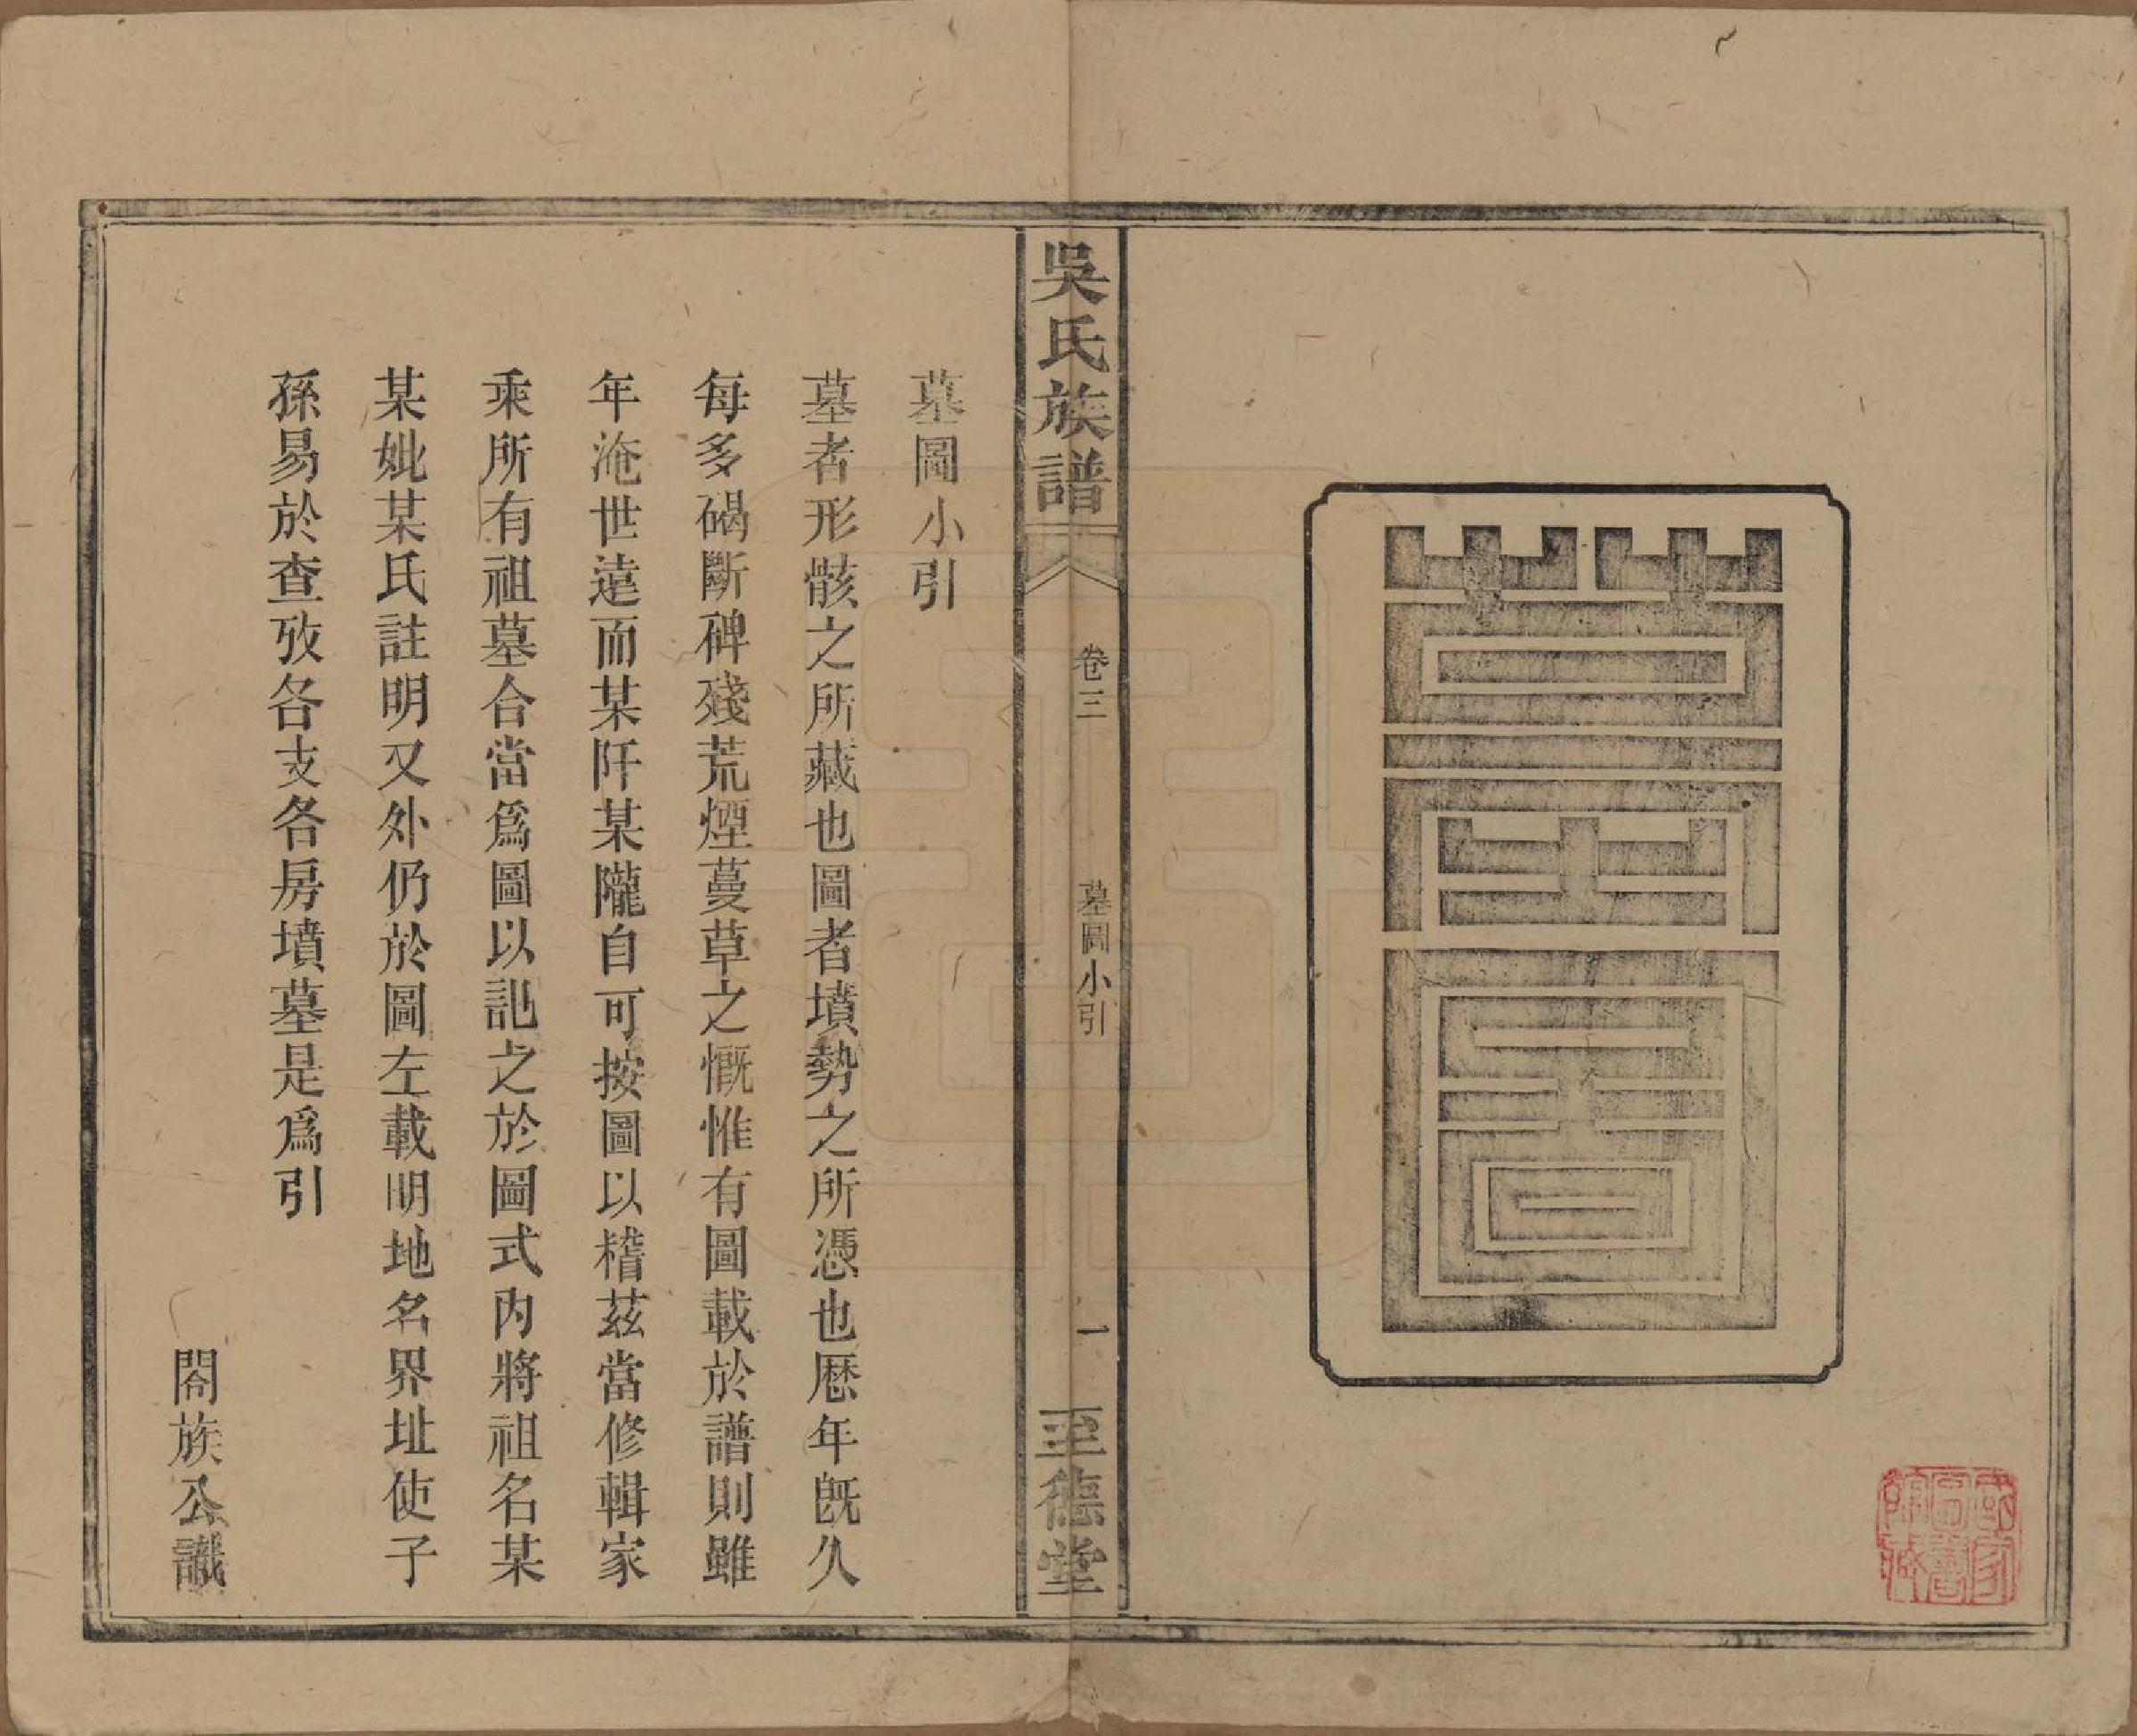 墓圖
國家
圖書
館藏
吳氏族譜
卷三
墓圖小引
一
至德堂
墓圖小引
墓者形骸之所藏也圖者墳勢之所慿也厯年既久
每多碣斷碑殘荒煙蔓草之慨惟有圖載於譜則雖
年淹世遠而某阡某隴自可按圖以稽茲當修輯家
乘所有祖墓合當爲圖以記之於圖式內將祖名某
某妣某氏註明又外仍於圖左載明地名界址使子
孫易於查攷各支各房墳墓是爲引
閤族公識